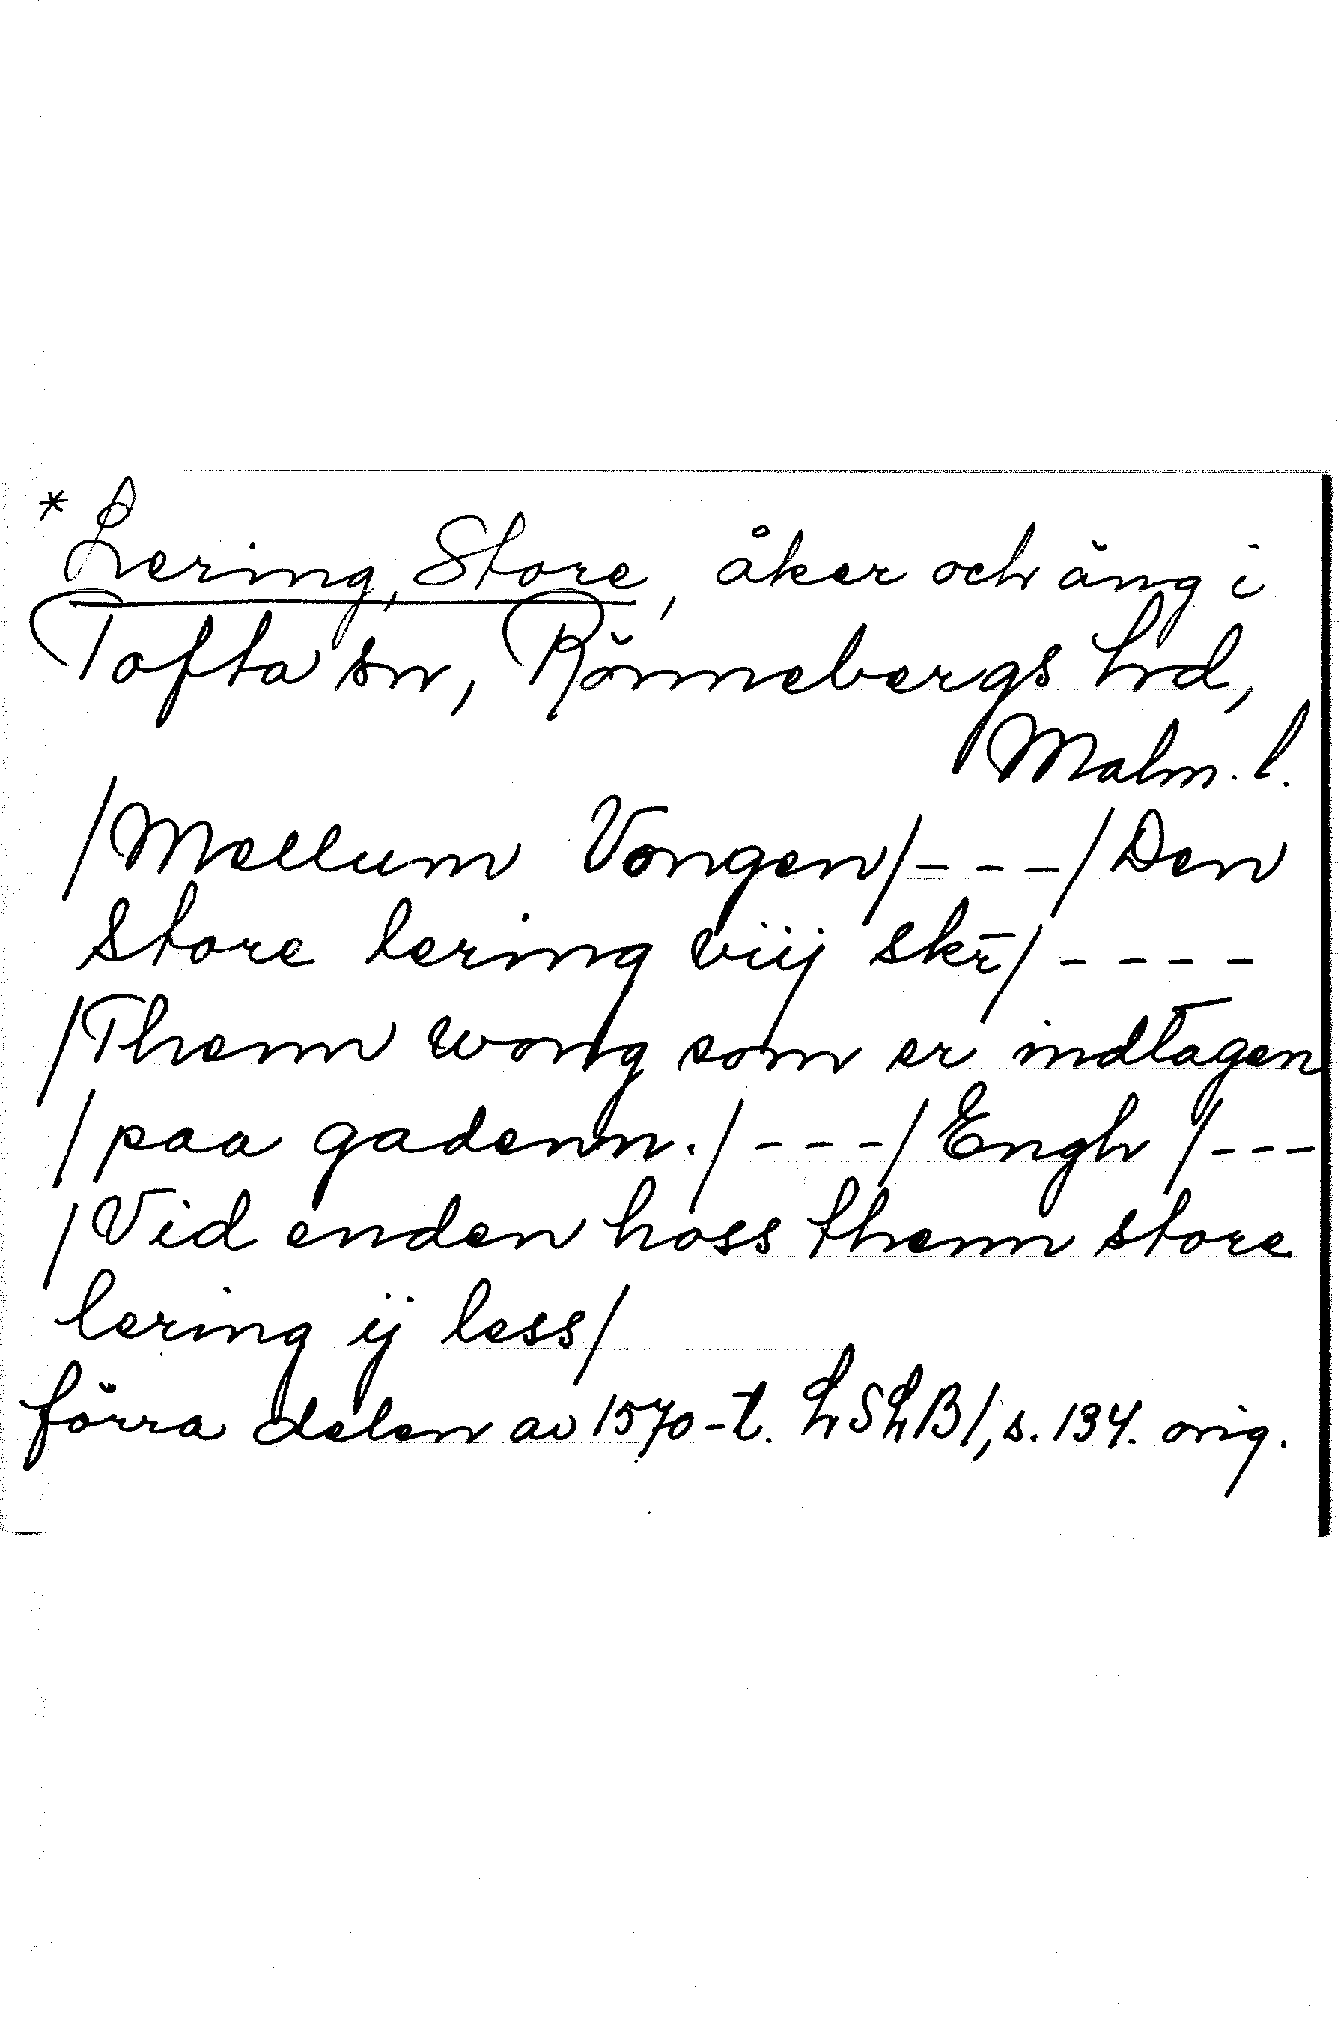 * Lering, Store, åker och äng i
Tofta sn, Rönnebergs hrd,
Malm. l.
/Mellum Vongen/ - - - /Den
store lering viij skr̄/ - - - -
/Thenn wong som er indtagen
/paa gadenn./ - - - /Engh /- - -
/Vid enden hoss thenn store
lering ij less/
förra delen av 1570-t. LSLB1, s. 134. orig.